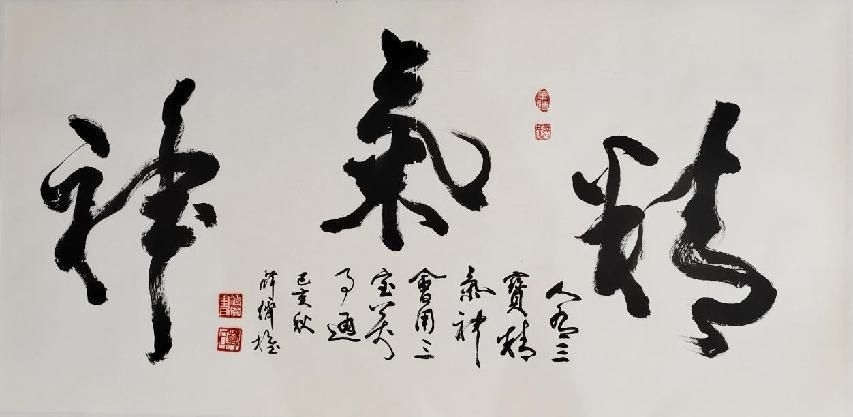 精氣神
人有三
寶精
氣神
會用三
宝萬
事通
己亥秋
薛